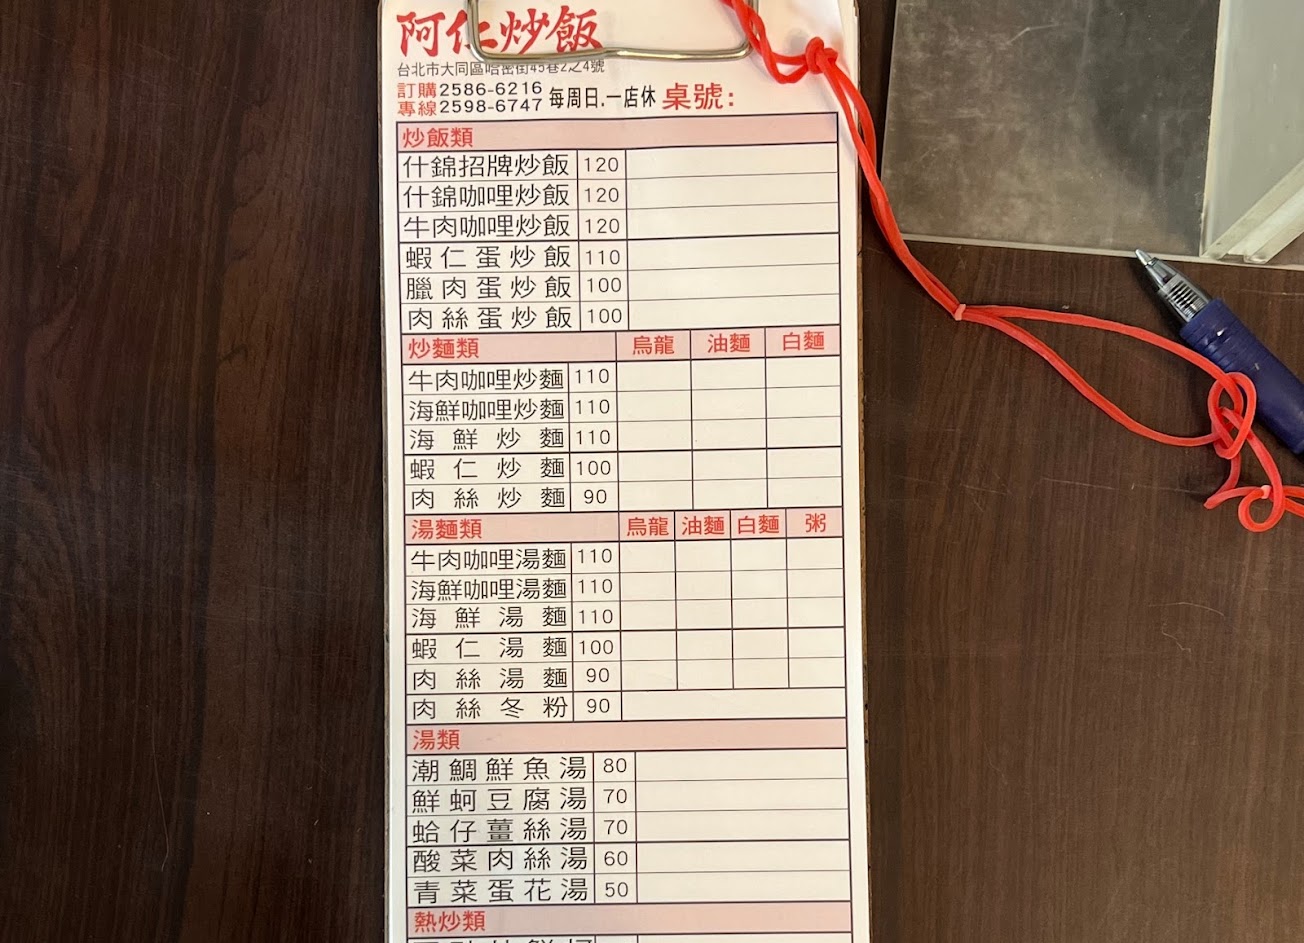 阿仁炒飯
台北市大同區哈密街45巷2之4號
訂購專線 2586-6216 2598-6747 每周日.一店休 桌號:
炒飯類
什錦招牌炒飯 120
什錦咖哩炒飯 120
牛肉咖哩炒飯 120
蝦仁蛋炒飯 110
臘肉蛋炒飯 100
肉絲蛋炒飯 100
炒麵類 烏龍 油麵 白麵
牛肉咖哩炒麵 110
海鮮咖哩炒麵 110
海鮮炒麵 110
蝦仁炒麵 100
肉絲炒麵 90
湯麵類 烏龍 油麵 白麵 粥
牛肉咖哩湯麵 110
海鮮咖哩湯麵 110
海鮮湯麵 110
蝦仁湯麵 100
肉絲湯麵 90
肉絲冬粉 90
湯類
潮鯛鮮魚湯 80
鮮蚵豆腐湯 70
蛤仔薑絲湯 70
酸菜肉絲湯 60
青菜蛋花湯 50
熱炒類